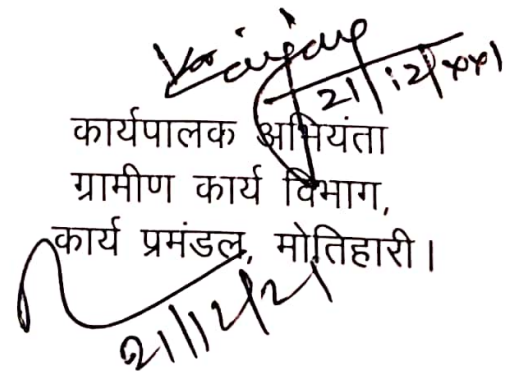 21/12/2021
कार्यपालक अभियंता
ग्रामीण कार्य विभाग,
कार्य प्रमंडल, मोतिहारी।
21/12/21